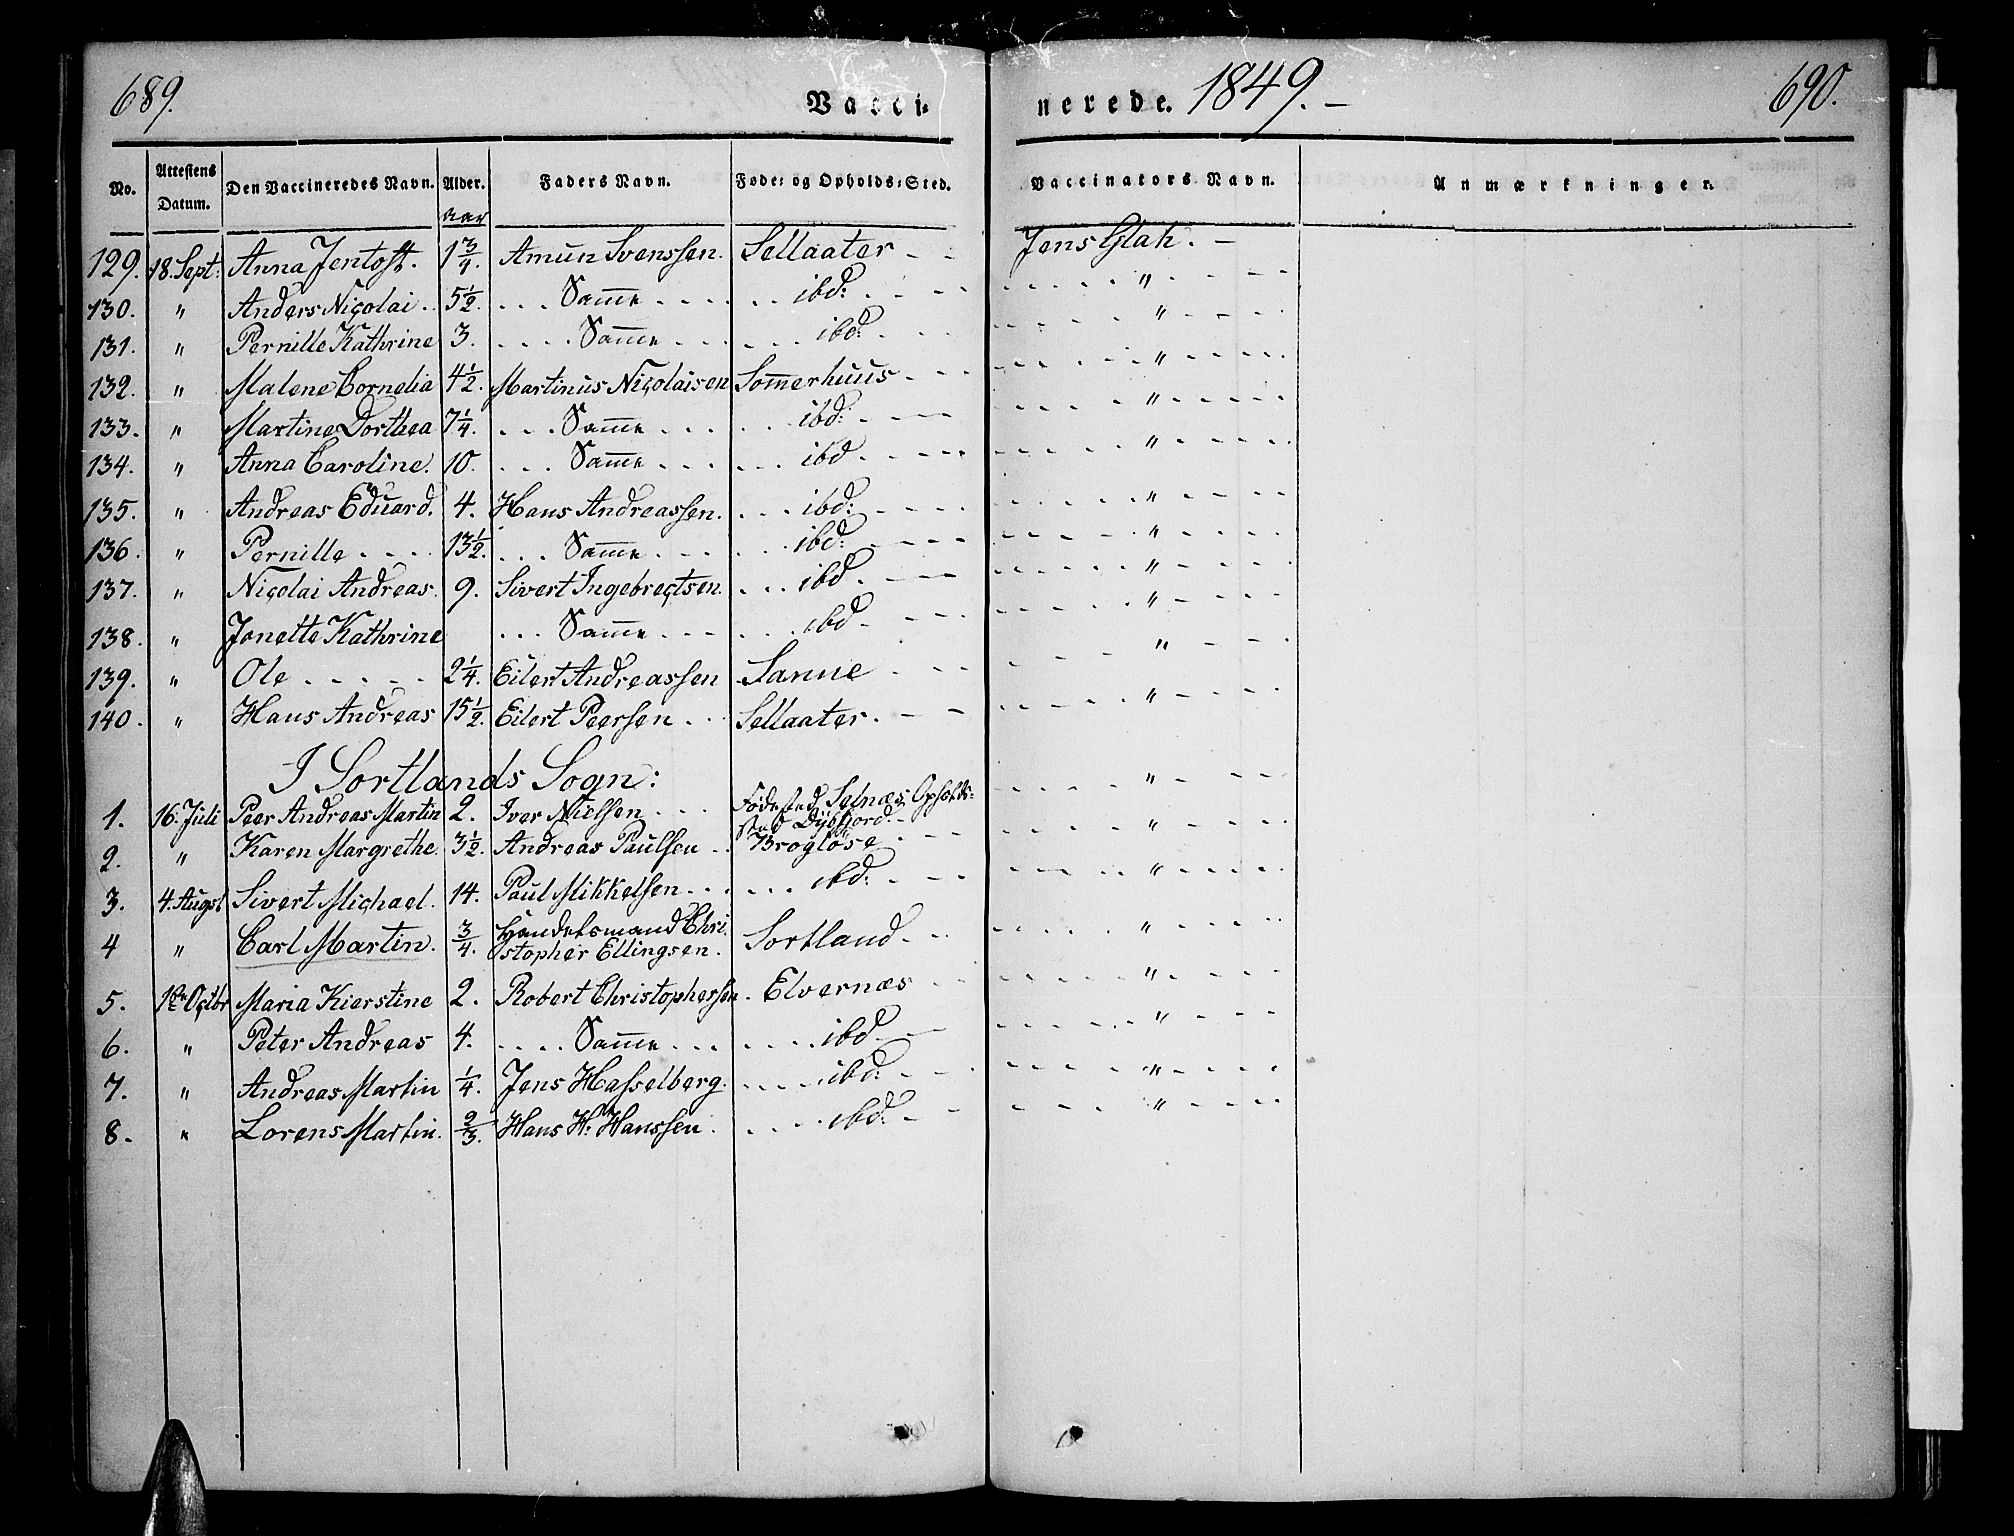 689.
Vacci-
nerede. 1849. -
690.
No. Attestens Datum. Den Vaccineredes Navn. Alder. Faders Navn. Føde- og Opholds-Sted. Vaccinators Navn. Anmærkninger.
Aar
129. 18. Sept: Anna Jentoft. 1 3/4. Amun Svenssen. Sellaater - - Jens Glah. -
130. " Anders Nicolai. 5 1/2. . . . Samme . . . . . . ibd: . - - - "
131. " Pernille Kathrine 3. . . . . Samme . . . . . . ibd: . - - "
132. " Malene Cornelia 4 1/2. Martinus Nicolaisen Sommerhuus - - - "
133. " Martine Dorthea 7 1/4. . . . Samme . . . . . . ibd: . - - "
134. " Anna Caroline. 10. . . . Samme . . . . . . ibd . - - - "
135. " Andreas Eduard. 4. Hans Andreassen. . . . ibd: - - - "
136. " Pernille . . . . 13 1/2. . . . Samme . . . . . . ibd: - - - "
137. " Nicolai Andreas. 9. Sivert Ingebrectsen. . . . ibd . - - "
138. " Jonette Kathrine . . . Samme . . . . . . ibd - - - "
139. " Ole . . . . . 2 1/4. Eilert Andreassen Sanne - - - "
140. " Hans Andreas 15 1/2. Eilert Peersen . . Sellaater. - - "
I Sortlands Sogn: "
1. 16. Juli Peer Andreas Martin 2. Iver Nielsen . . . Fødested Selnæs, Opholds-
sted Dybfjord. - "
2. " Karen Margrethe. 3 1/2. Andreas Paulsen . . Brogløse - - - "
3. 4. Augst Sivert Michael. 14. Paul Mikkelsen . . . . . . ibd: - - - "
4 " Carl Martin. 3/4. Handelsmand Chri-
stopher Ellingsen. Sortland - - - "
5. 1ste Octbr Maria Kierstine 2. Robert Christophersen . Elvernæs - - "
6. " Peter Andreas 4. . . . . Samme . . . . . . . ibd. - "
7. " Andreas Martin 1/4. Jens Hasselberg. . . . . ibd: - - - "
8. " Lorens Martin. 2/3. Hans H: Hanssen . . . . . ibd: - - "